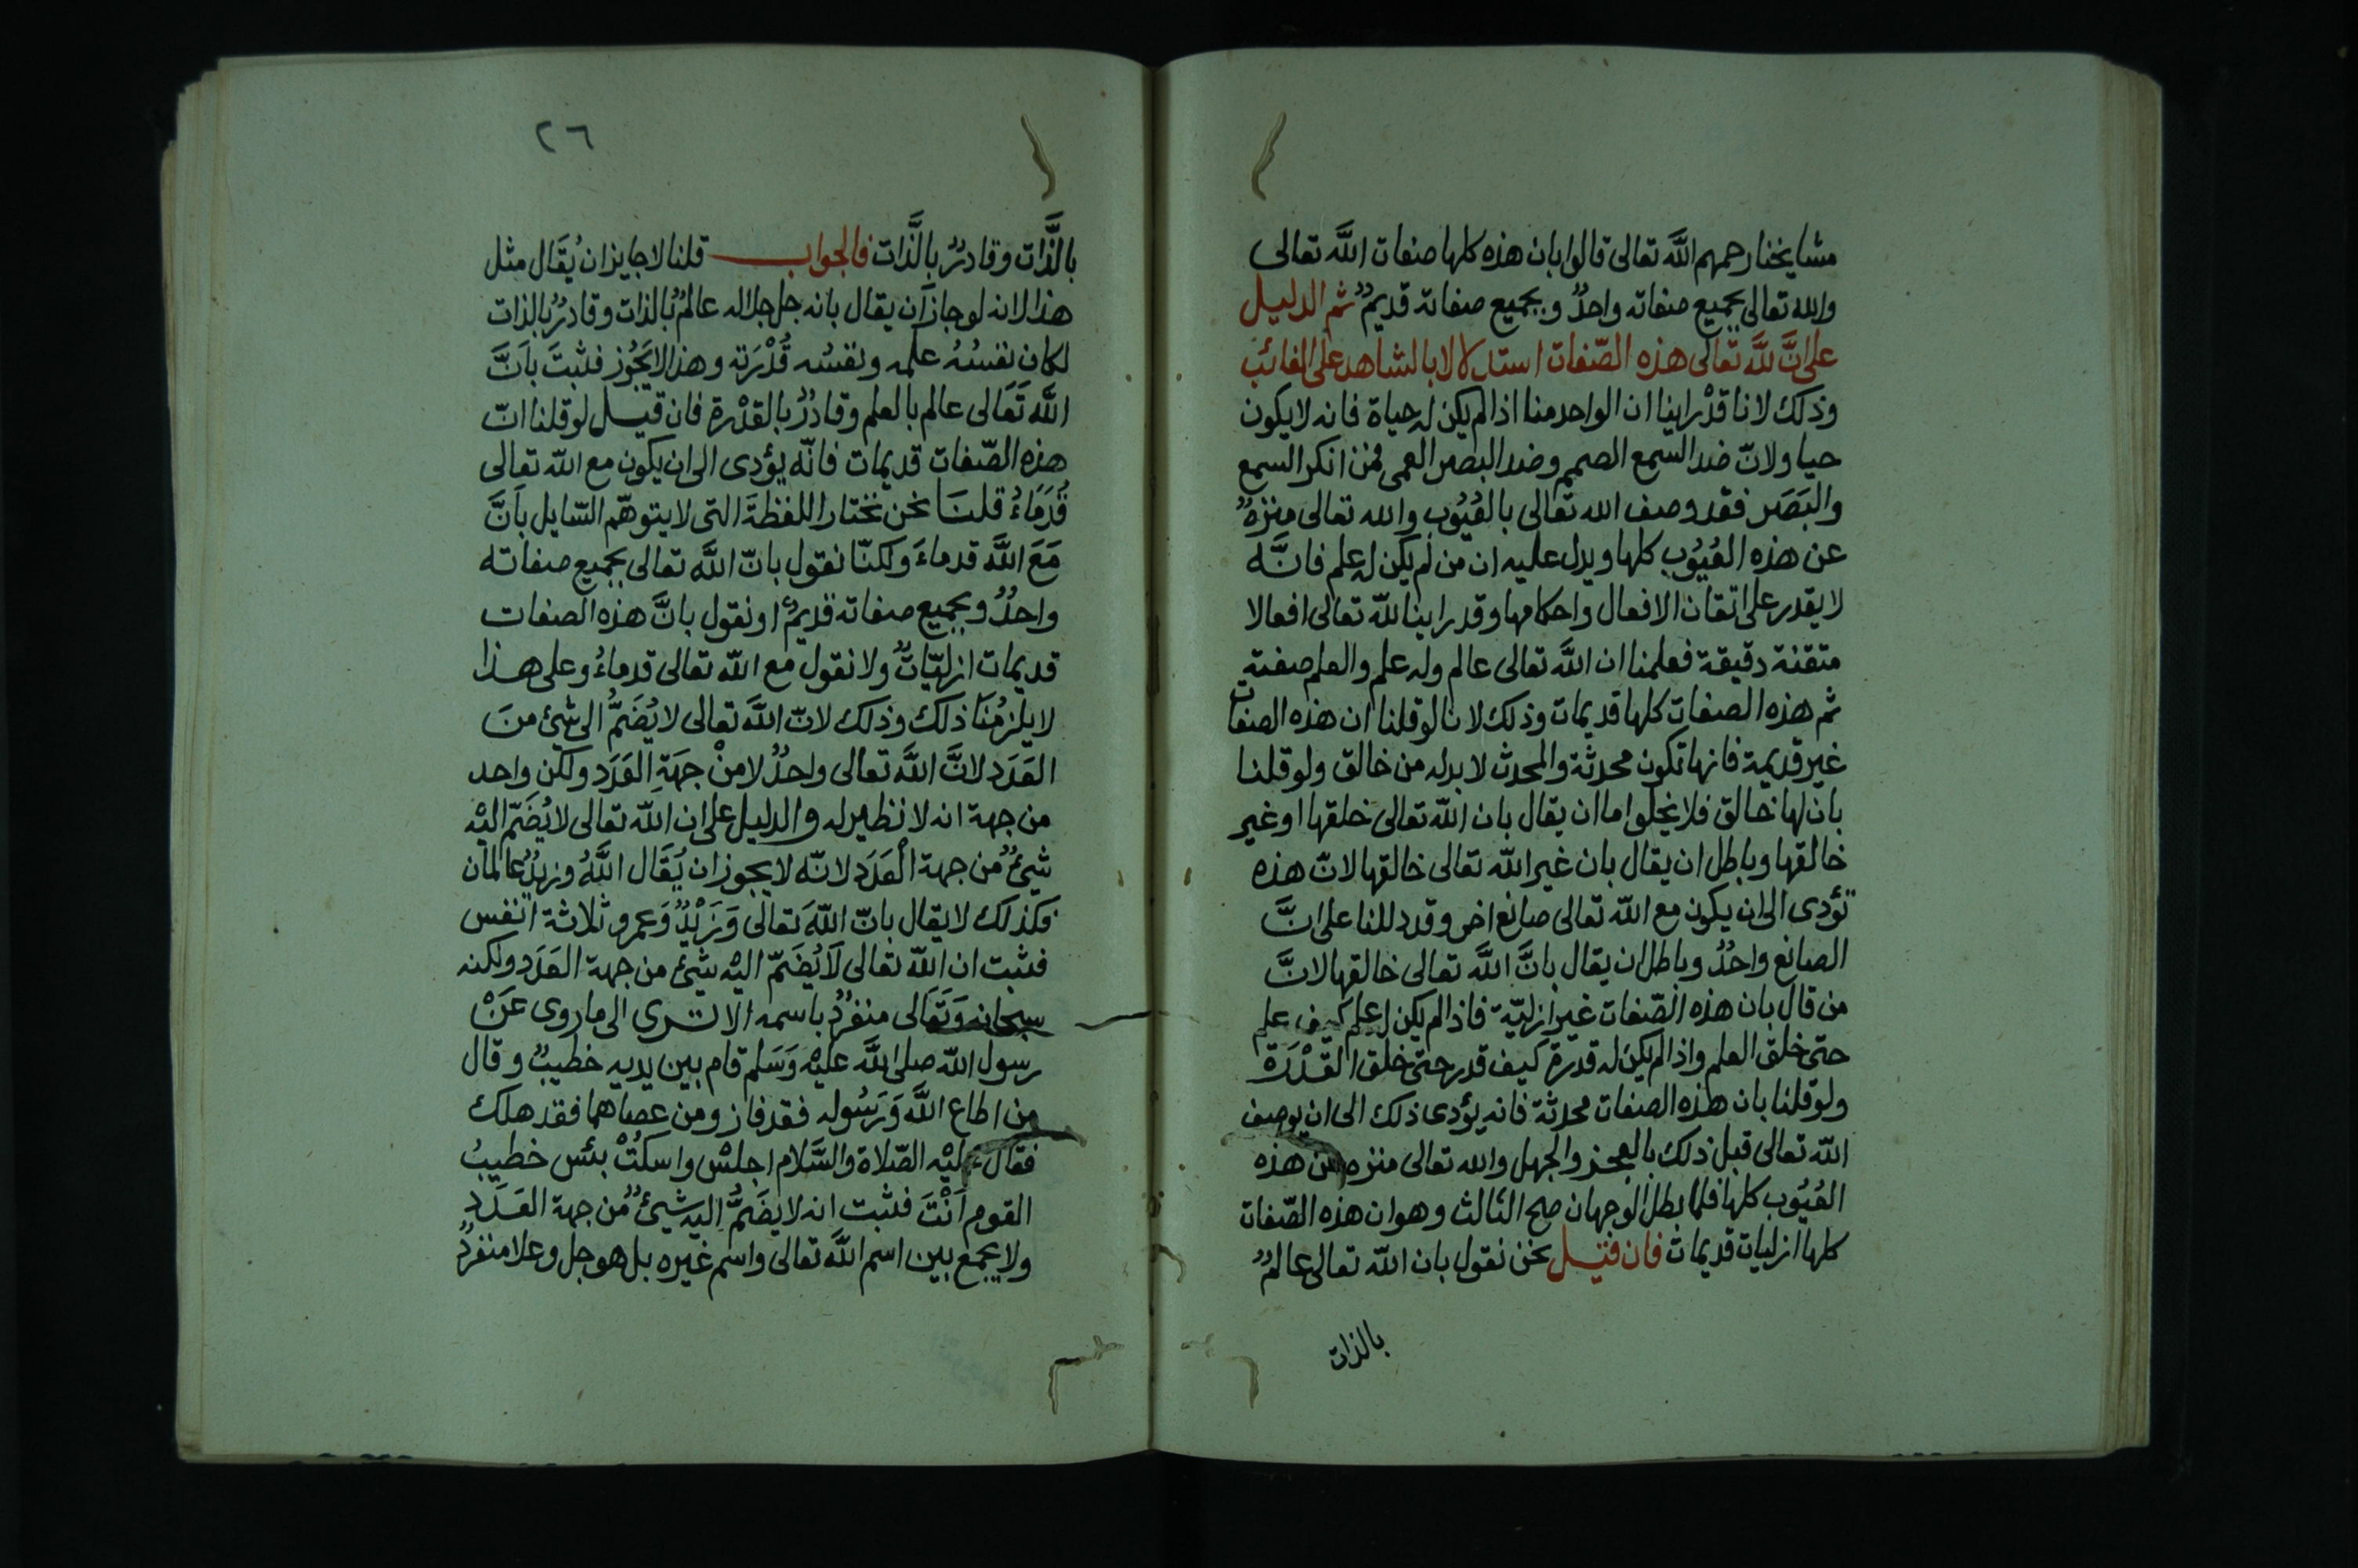 مشايخنا رحمهم اللَّه تعالى قالوا بان هذه كلها صفات اللَّه تعالى
والله تعالى بجميع صفاته واحدٌ وبجميع صفاته قديمٌ ثم الدليل
على انَّ للَّه تعالى هذه الصّفات استدلالا بالشاهد على الغائب
وذلك لانا قدْ راينا ان الواحد منا اذا لم يكن له حياة فانه لا يكون
حيا ولانّ ضد السمع الصمم وضد البصر العمى فمن انكر السمع
والبَصَر فقد وصف الله تعالى بالعُيُوب والله تعالى منزهٌ
عن هذه العُيُوب كلها ويدل عليه ان من لم يكن له علم فانَّه
لا يقدر على اتقان الافعال واحكامها وقد راينا للّه تعالى افعالا
متقنة دقيقة فعلمنا ان اللَّه تعالى عالم وله علم والعلم صفته
ثم هذه الصفات كلها قديمات وذلك لانا لو قلنا ان هذه الصفات
غير قديمة فانها تكون محدثة والمحدث لا بد له من خالق ولو قلنا
بان لها خالق فلا يخلوا اما ان يقال بان اللّه تعالى خلقها او غير
خالقها وباطل ان يقال بان غير اللّه تعالى خالقها لانّ هذه
تؤدى الى ان يكون مع اللّه تعالى صانع اخر وقد دللنا على انَّ
الصانع واحدٌ وباطل ان يقال بانَّ اللَّه تعالى خالقها لانَّ
من قال بان هذه الصّفات غير ازليّة فاذا لم يكن له علم كيف علم
حتى خلق العلم واذا لم يكن له قدرة كيف قدر حتى خلق القدْرَة
ولو قلنا بان هذه الصفات محدثة فانه يؤدى ذلك الى ان يوصف
اللّه تعالى قبل ذلك بالعجز والجهل والله تعالى منزه عن هذه
العُيُوب كلها فلما بطل الوجهان صح الثالث وهو ان هذه الصّفات
كلها ازليات قديمات فان قيل نحن نقول بان اللّه تعالى عالمٌ
بالذات
٢٦
بالَّذَّات وقادرٌ بالَّذَات فالجواب قلنا لا جايز ان يُقَال مثل
هذا لانه لو جاز اَن يقال بانه جل جلاله عالمٌ بالذات وقادرٌ بالذات
لكان نفسُهُ علمه ونفسُه قُدْرَته وهذا لا يَجُوز فثبتَ باَنَّ
اللَّه تَعَالى عالم بالعلم وقادرٌ بالقدْرة فان قيل لو قلنا انّ
هذه الصّفات قديمات فانّه يؤدى الى ان يكون مع اللّه تعالى
قُدَمَاءُ قلنَا نحن نختار اللفظةَ التى لا يتوهّم السّايل باَنَّ
مَعَ اللَّه قدماءَ ولكنّا نقول بانّ اللَّه تعالى بجميع صفاته
واحدٌ وبجميع صفاته قديمٌ او نقول بانَّ هذه الصفات
قديمات ازليّاتٌ ولا نقول مع اللّه تعالى قدماءُ وعلى هذا
لا يلزمُنَا ذلك وذلك لانّ اللَّه تعالى لا يُضَمُّ الى شئ منَ
العَدَد لانَّ اللَّه تعالى واحدٌ لا منْ جهَةِ العَدَد ولكن واحد
من جهة انه لا نظير له والدليل على ان اللّه تعالى لا يُضَمّ اليْه
شئٌ من جهة الْعَدَد لانّه لا يجوز ان يُقَال اللَّهُ وزيدٌ عالمان
فكذلك لا يقال بانّ اللّهَ تعالى وَزَيْدٌ وَعمرو ثلاثة انفس
فثبت ان اللّه تعالى لَا يُضَمّ اليْه شئ من جهة العَدَد ولكنه
سبحانه وَتَعَالى منفردٌ باسمه الا ترى الى ما روى عَنْ
رسول اللّه صلى اللَّه عليْه وَسَلم قام بين يديه خطيبٌ وقال
من اطاع اللَّه وَرَسُوله فقد فاز ومن عصاهما فقد هلك
فقال عليْه الصّلاة والسَّلام اجلسْ واسكتْ بئس خطيبُ
القوم اَنْتَ فثبت انه لا يضَمُّ اليه شئٌ من جهة العَدَد
ولا يجمع بين اسم اللَّه تعالى واسم غيره بل هو جل وعلا منفردٌ